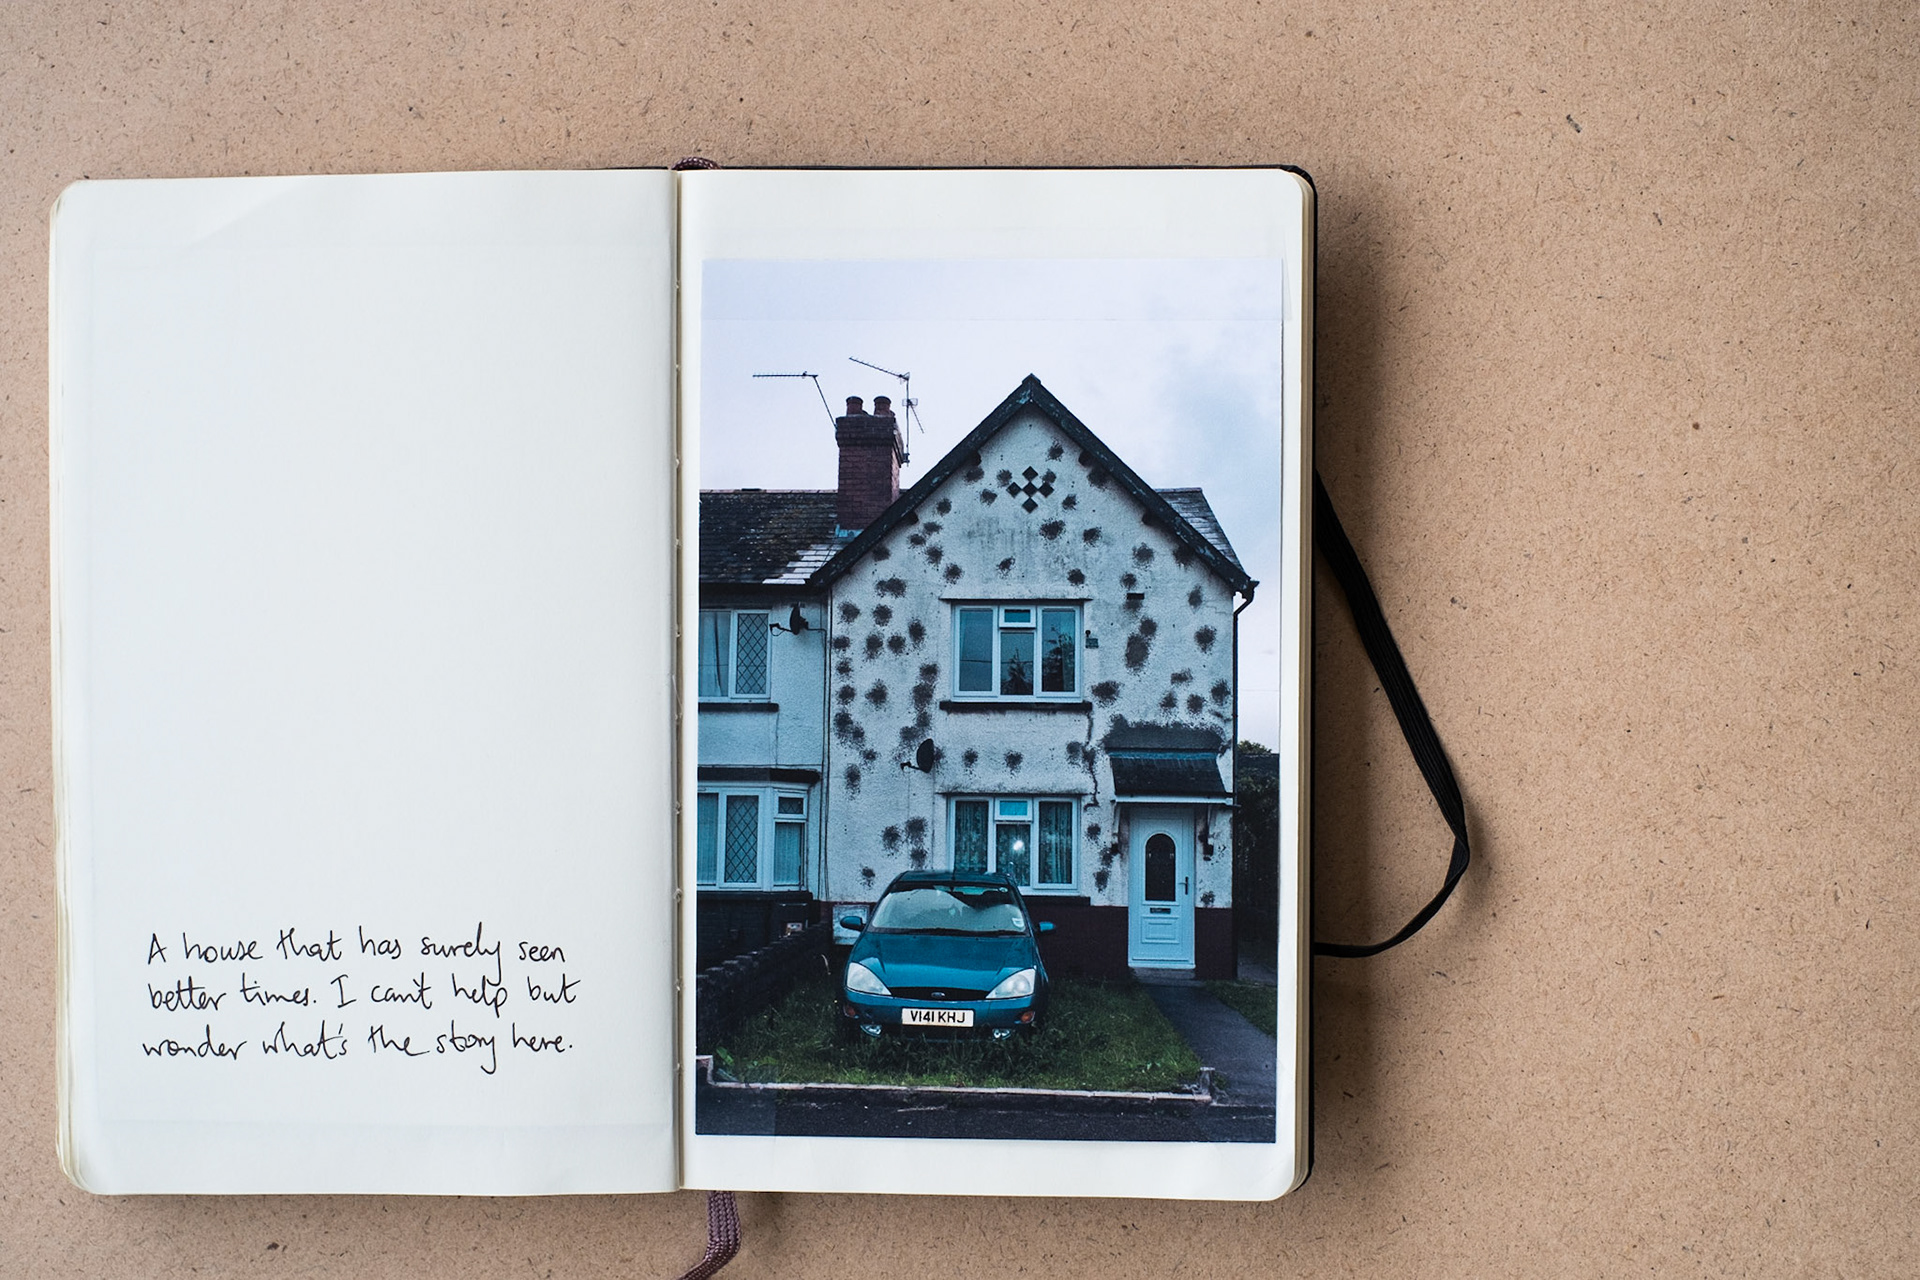 A house that has surely seen
better times. I can't help but
wonder what's the story here.
V141 KHJ